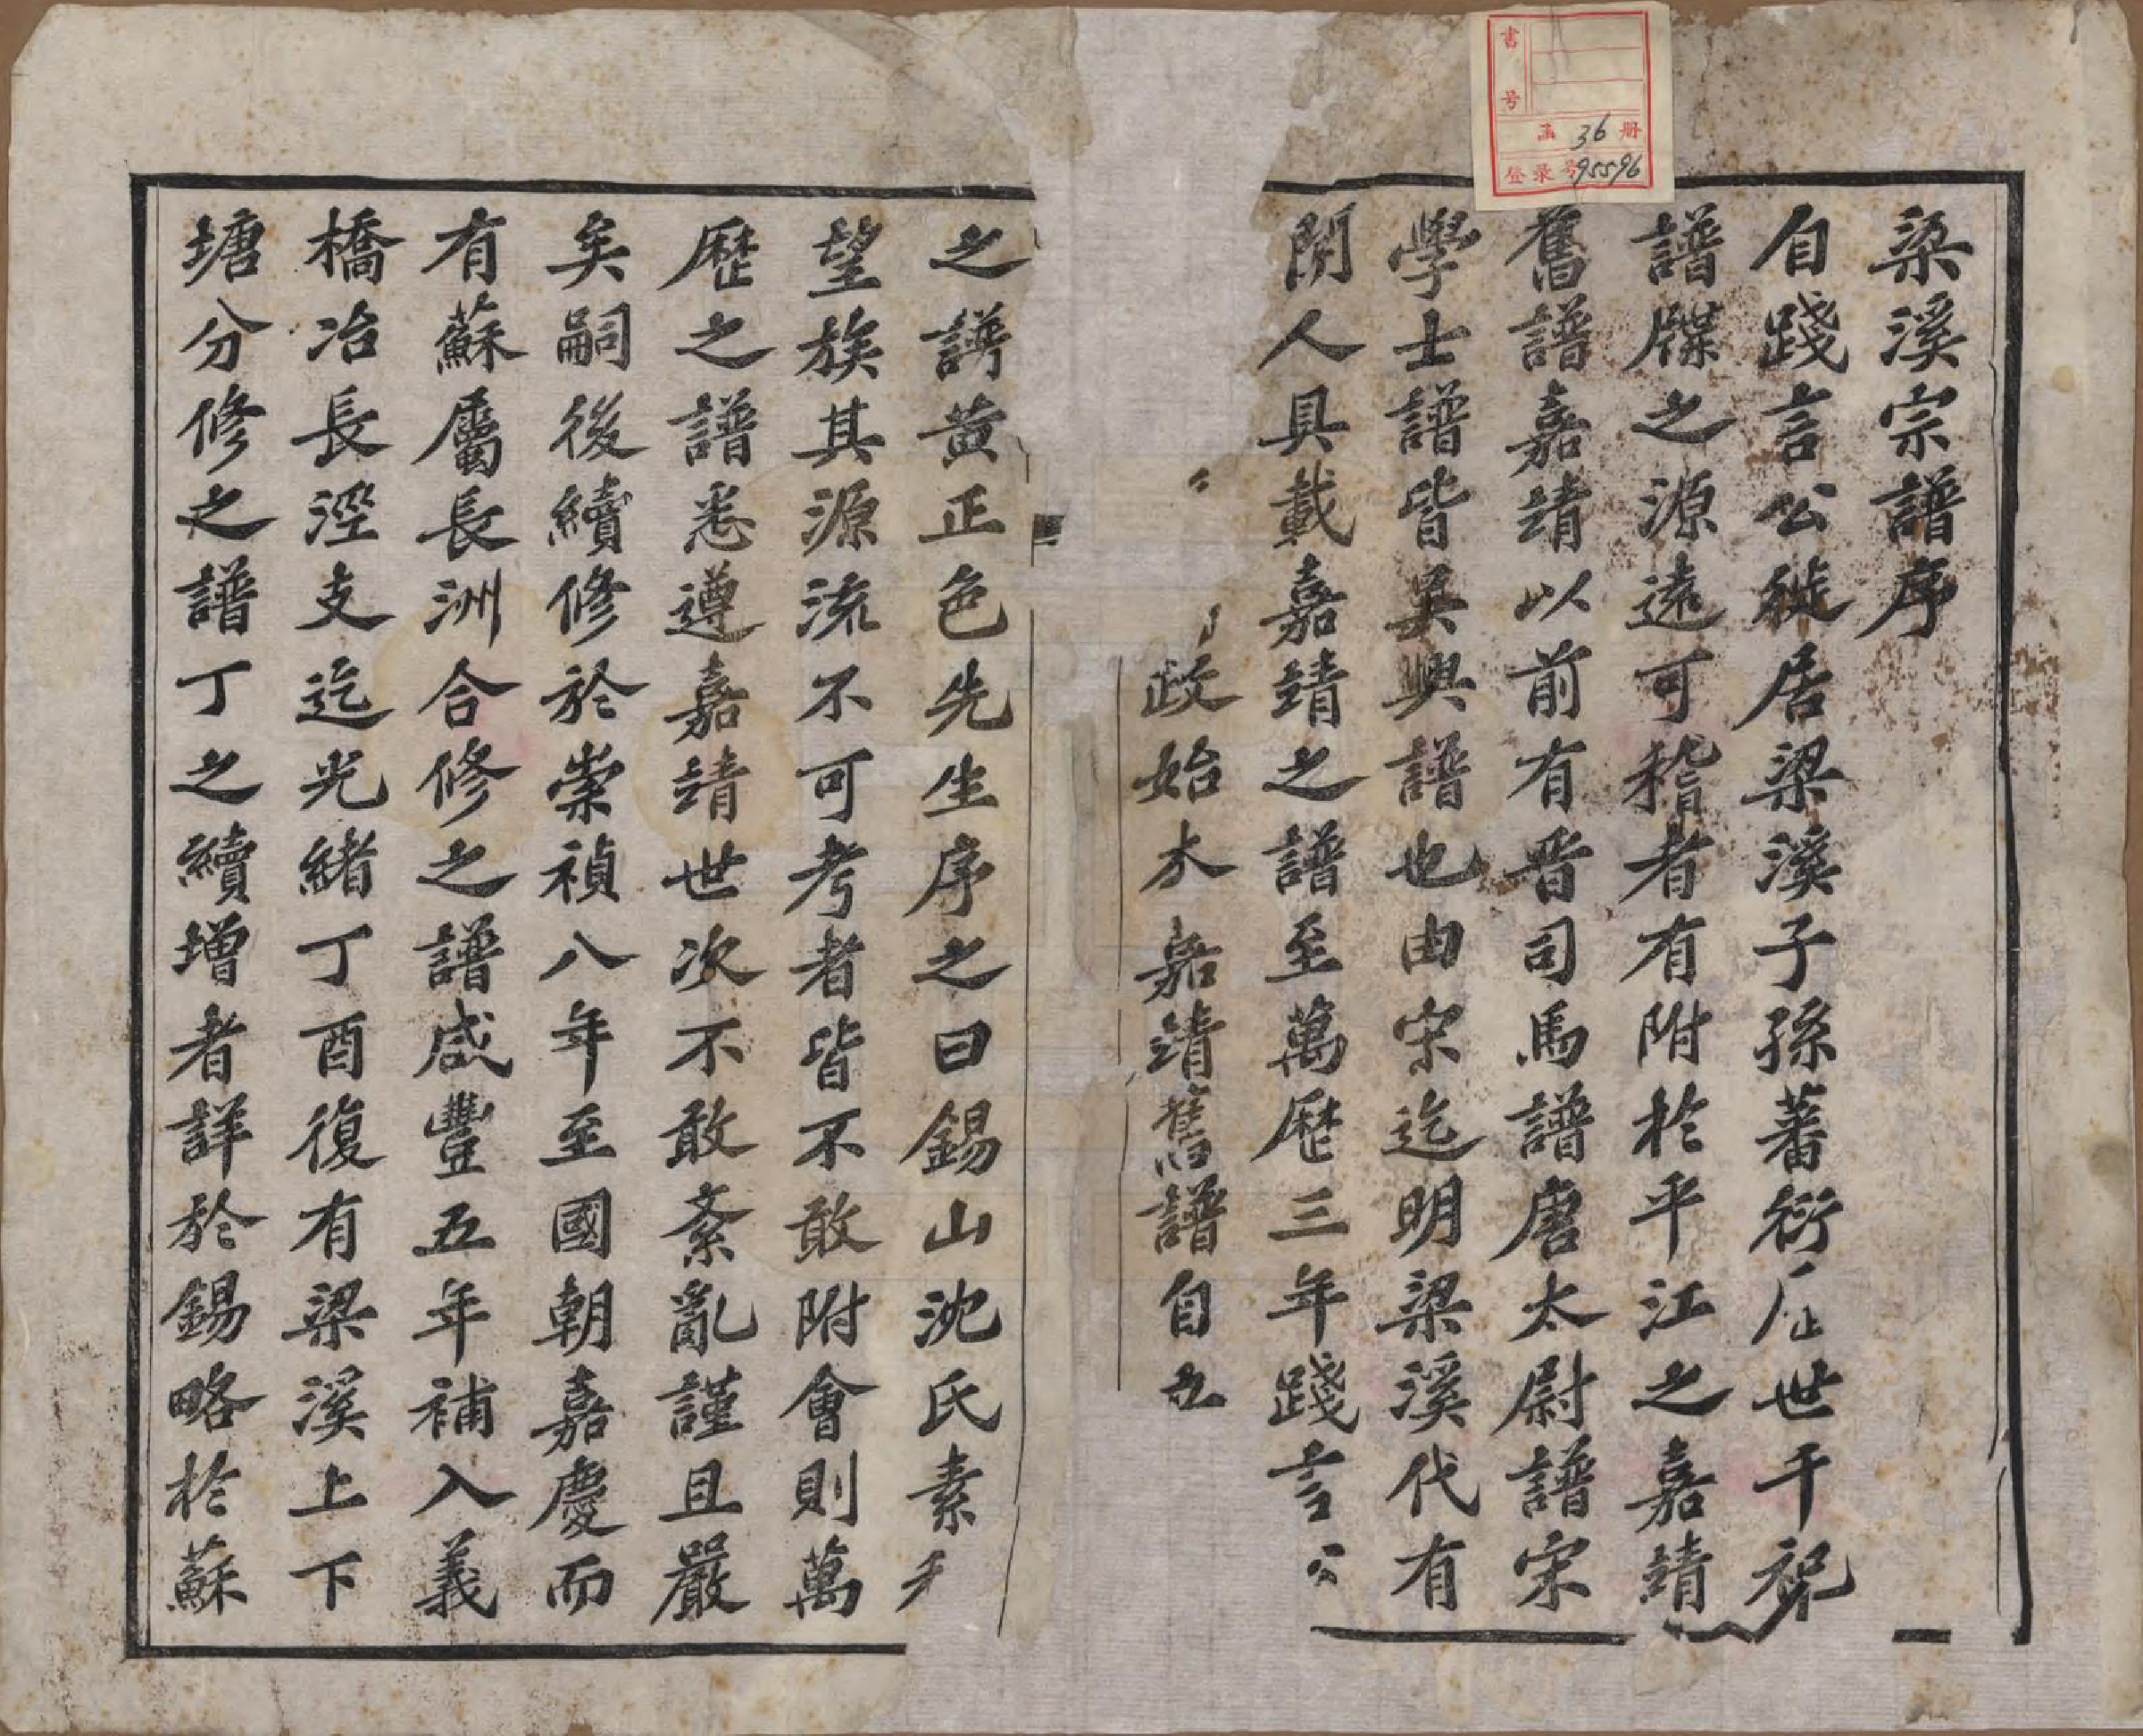 梁溪宗譜序
自踐言公徙居梁溪子孫蕃衍歷世千祀
譜牒之源遠可稽者有附於平江之嘉靖
舊譜嘉靖以前有晋司馬譜唐太尉譜宋
學士譜皆吳興譜也由宋迄明梁溪代有
聞人具載嘉靖之譜至萬歷三年踐言公
政始本嘉靖舊譜自
之譜黄正色先生序之曰錫山沈氏素
望族其源流不可考者皆不敢附會則萬
歷之譜悉遵嘉靖世次不敢紊亂謹且嚴
矣嗣後續修於崇禎八年至國朝嘉慶而
有蘇屬長洲合修之譜咸豐五年補入義
橋冶長涇支迄光緒丁酉復有梁溪上下
塘分修之譜丁之續增者詳於錫略於蘇
書号
函 36 册
登录号 95596